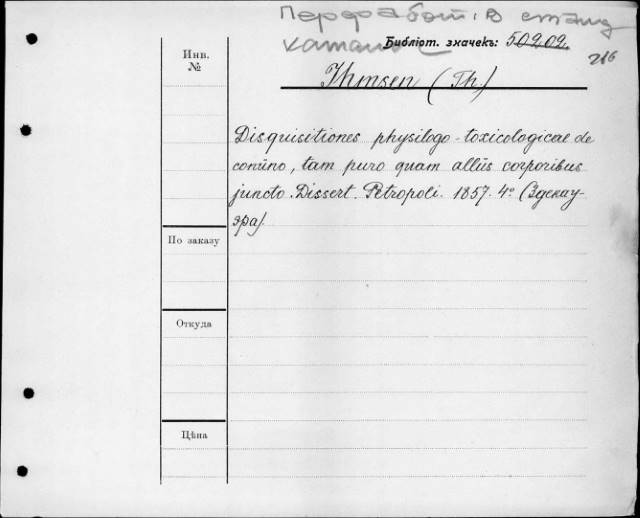 Переработ. в станд
каталог
Библіот. значекъ: 50202.
216
Инв.
№
Ihmsen (Th)
Disquisitiones physilogo-toxicologicae de
coniino, tam puro quam allïis corporibus
juncto. Dissert. Petropoli. 1857. 4º (3 декау-
эра).
По заказу
Откуда
Цѣна